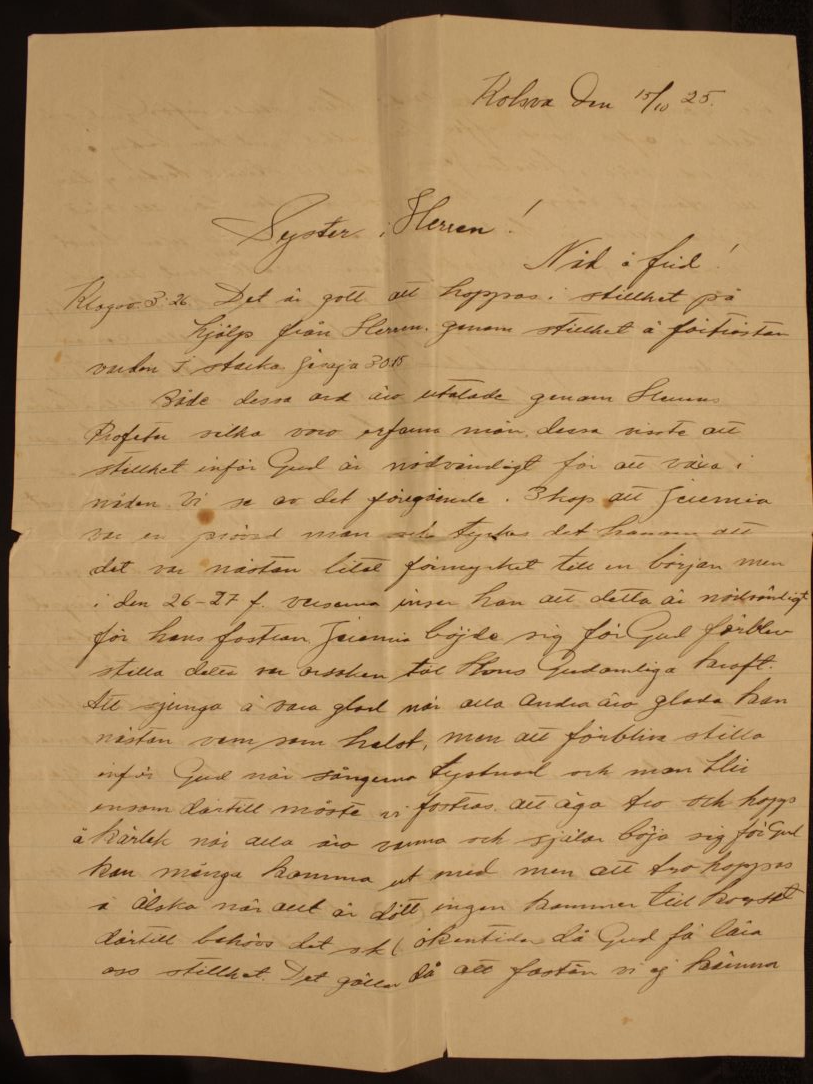 Kolsva den 15/10 25.
Syster i Herren!
Nåd å frid!
Klagov. 3:26. Det är gott att hoppas i stillhet på
hjälp från Herren. genom stillhet å förtröstan
varden I starka Jesaja 30.15
Både dessa ord äro utalade genom Herrens
Profeter vilka voro erfarna män, dessa visste att
stillhet inför Gud är nödvändigt för att växa i
nåden. Vi se av det föregående. 3 kap att Jeremia
var en prövad man och tyckes det honom att
det var nästan litet för mycket till en början men
i den 26-27 f. verserna inser han att detta är nödvändigt
för hans fostran Jeremia böjde sig för Gud förblev
stilla detta var orsaken till Hans Gudomliga kraft.
Att sjunga å vara glad när alla andra äro glada kan
nästan vem som helst, men att förbliva stilla
inför Gud när sångerna tystnad och man blir
ensom därtill måste vi fostras. att äga tro och hopp
å kärlek när alla äro varma och själar böja sig för Gud
kan många komma ut med men att tro hoppas
å älska när allt är dött ingen kommer till korset
därtill behövs det sk ökentider då Gud få lära
oss stillhet. Det gäller då att fastän vi ej känna